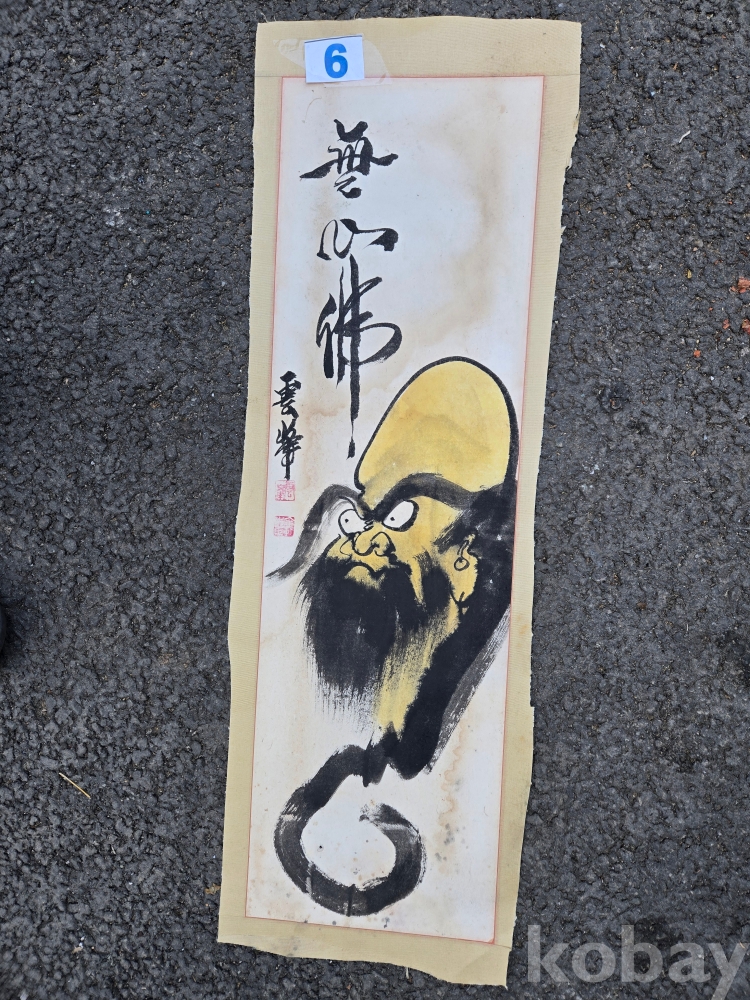 6
無心佛
雲峯
kobay